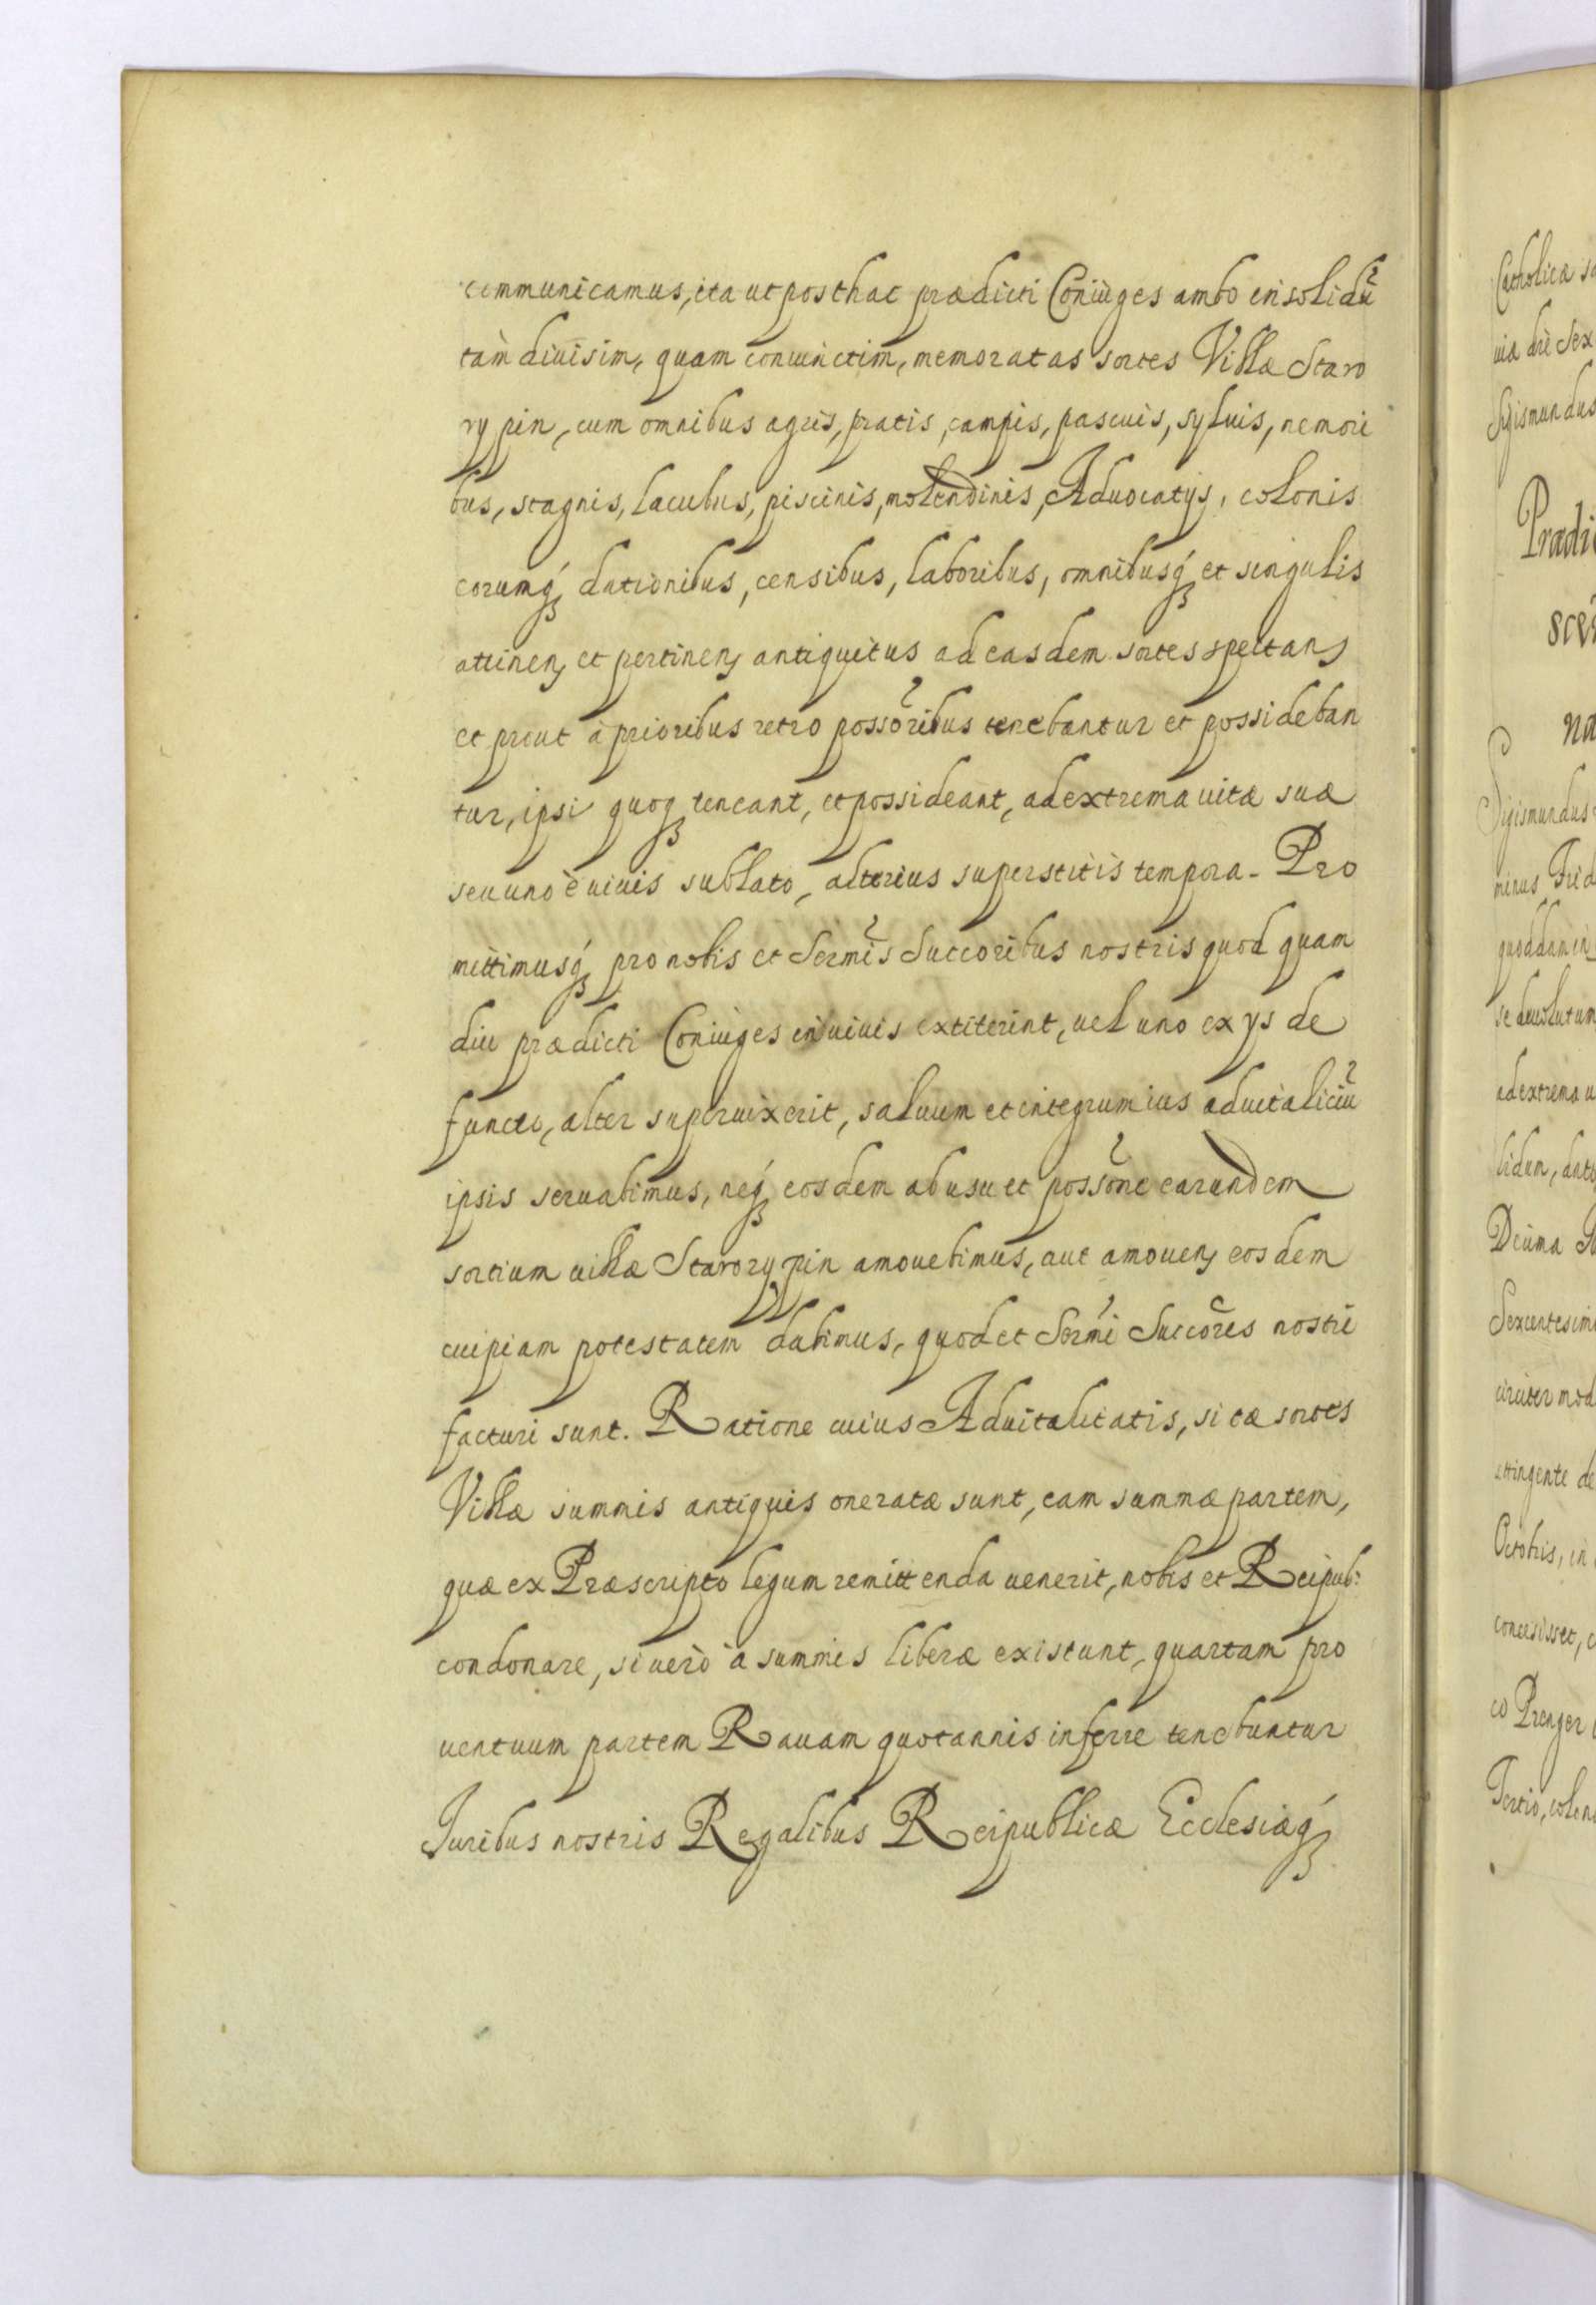 communicamus, ita ut posthac prædicti Coniuges ambo in solidũ
tam diuisim, quam coniunctim, memoratas sortes Villæ Staro
rypin, cum omnibus agris, pratis, campis, pascuis, syluis, nemori
bus, stagnis, lacubus, piscinis, molendinis, Aduocatijs, colonis
eorumq́ꝫ dationibus, censibus, laboribus, omnibusq́ꝫ et singulis
attinenꝭ et pertinenꝭ antiquitus ad easdem sortes spectanꝭ
et prout à prioribus retro possõribus tenebantur et possideban
tur, ipsi quoqꝫ teneant, et possideant, ad extrema uitæ suæ
seu uno è uiuis sublato, alterius superstitis tempora. Pro
mittimusq́ꝫ pro nobis et Sermĩs Succoribus nostris quod quam
diu prædicti Coniuges in uiuis extiterint, uel uno ex ijs de
functo, alter superuixerit, saluum et integrum ius aduitaliciũ
ipsis seruabimus, neq́ꝫ eosdem ab usu et possõne earundem
sortium uillæ Starorypin amouebimus, aut amouenꝭ eosdem
cuipiam potestatem dabimus, quod et Sermĩ Succõres nostri
facturi sunt. Ratione cuius Aduitalitatis, si eæ sortes
Villæ summis antiquis oneratæ sunt, eam summæ partem,
quæ ex Præscripto legum remittenda uenerit, nobis et Reipub:
condonare, si uerò à summis liberæ existunt, quartam pro
uentuum partem Rauam quotannis inferre tenebuntur
Iuribus nostris Regalibus Reipublicæ Ecclesiæq́ꝫ